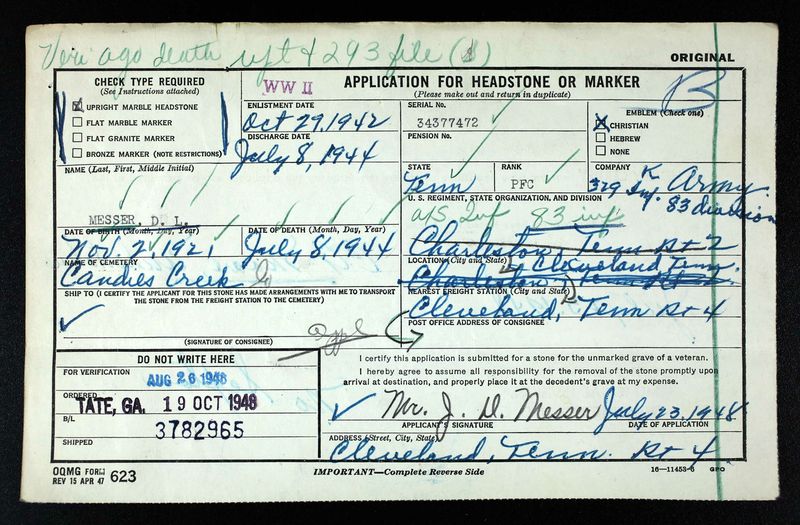 Veri ago death rpt & 293 file (S)
ORIGINAL
CHECK TYPE REQUIRED
(See Instructions attached)
UPRIGHT MARBLE HEADSTONE
FLAT MARBLE MARKER
FLAT GRANITE MARKER
BRONZE MARKER (NOTE RESTRICTIONS)
WW II
APPLICATION FOR HEADSTONE OR MARKER
(Please make out and return in duplicate)
B
ENLISTMENT DATE
Oct 29, 1942
DISCHARGE DATE
July 8, 1944
SERIAL No.
34377472
PENSION No.
EMBLEM (Check one)
CHRISTIAN
HEBREW
NONE
STATE
Tenn
RANK
PFC
COMPANY
K
329 Inf. Army
83 division
NAME (Last, First, Middle Initial)
MESSER, D. L.
U. S. REGIMENT, STATE ORGANIZATION, AND DIVISION
a/s Inf 83 inf
DATE OF BIRTH (Month, Day, Year)
Nov 2, 1921
DATE OF DEATH (Month, Day, Year)
July 8, 1944
Charleston, Tenn Rt 2
NAME OF CEMETERY
Candies Creek
LOCATION (City and State)
Cleveland Tenn.
Charleston,
SHIP TO (I CERTIFY THE APPLICANT FOR THIS STONE HAS MADE ARRANGEMENTS WITH ME TO TRANSPORT
THE STONE FROM THE FREIGHT STATION TO THE CEMETERY)
NEAREST FREIGHT STATION (City and State)
Cleveland, Tenn Rt 4
POST OFFICE ADDRESS OF CONSIGNEE
(SIGNATURE OF CONSIGNEE)
Appl
DO NOT WRITE HERE
FOR VERIFICATION
AUG 26 1948
ORDERED
TATE, GA. 19 OCT 1948
B/L
3782965
SHIPPED
I certify this application is submitted for a stone for the unmarked grave of a veteran.
I hereby agree to assume all responsibility for the removal of the stone promptly upon
arrival at destination, and properly place it at the decedent's grave at my expense.
Mr. J. D. Messer July 23, 1948
APPLICANT'S SIGNATURE DATE OF APPLICATION
ADDRESS (Street, City, State)
Cleveland, Tenn. Rt 4
OQMG FORM
REV 15 APR 47 623
IMPORTANT—Complete Reverse Side
16—11453-6 GPO